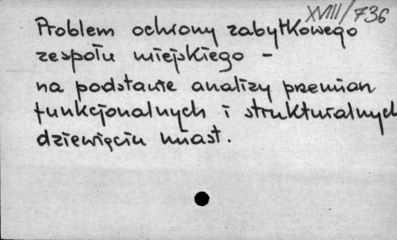 XVIII/736
Problem ochrony zabytkowego
zespołu miejskiego -
na podstawie analizy przemian
funkcjonalnych i strukturalnych
dziewięciu miast.